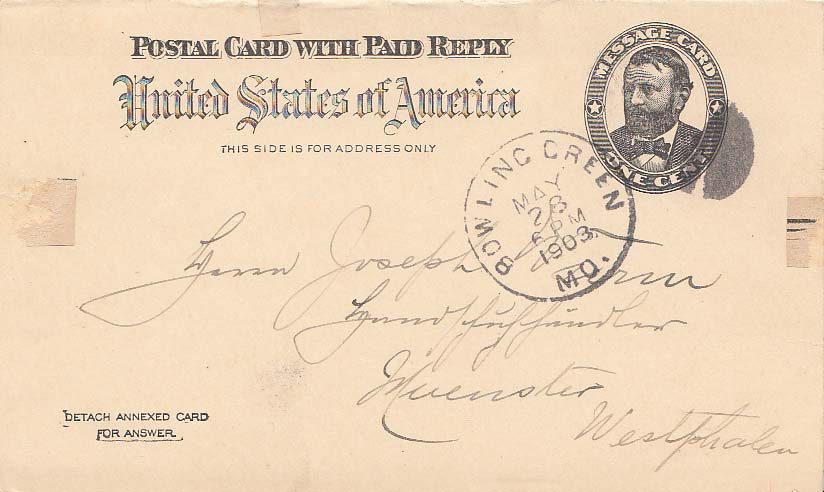 POSTAL CARD WITH PAID REPLY
United States of America
THIS SIDE IS FOR ADDRESS ONLY
MESSAGE CARD
ONE CENT
BOWLING GREEN
MAY
28
6 PM
1903
MO.
Herrn Joseph
Handschuhhändler
Muenster
Westphalen
DETACH ANNEXED CARD
FOR ANSWER.